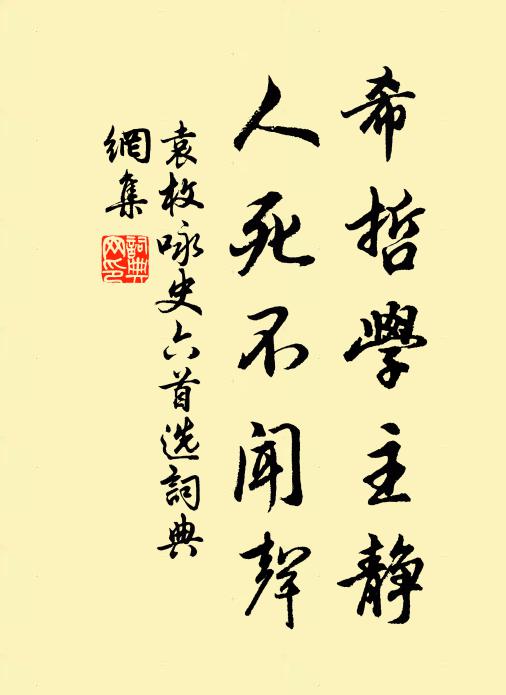 希哲學主靜
人死不闻聲
袁枚咏史六首选詞典
網集
詞典
网印